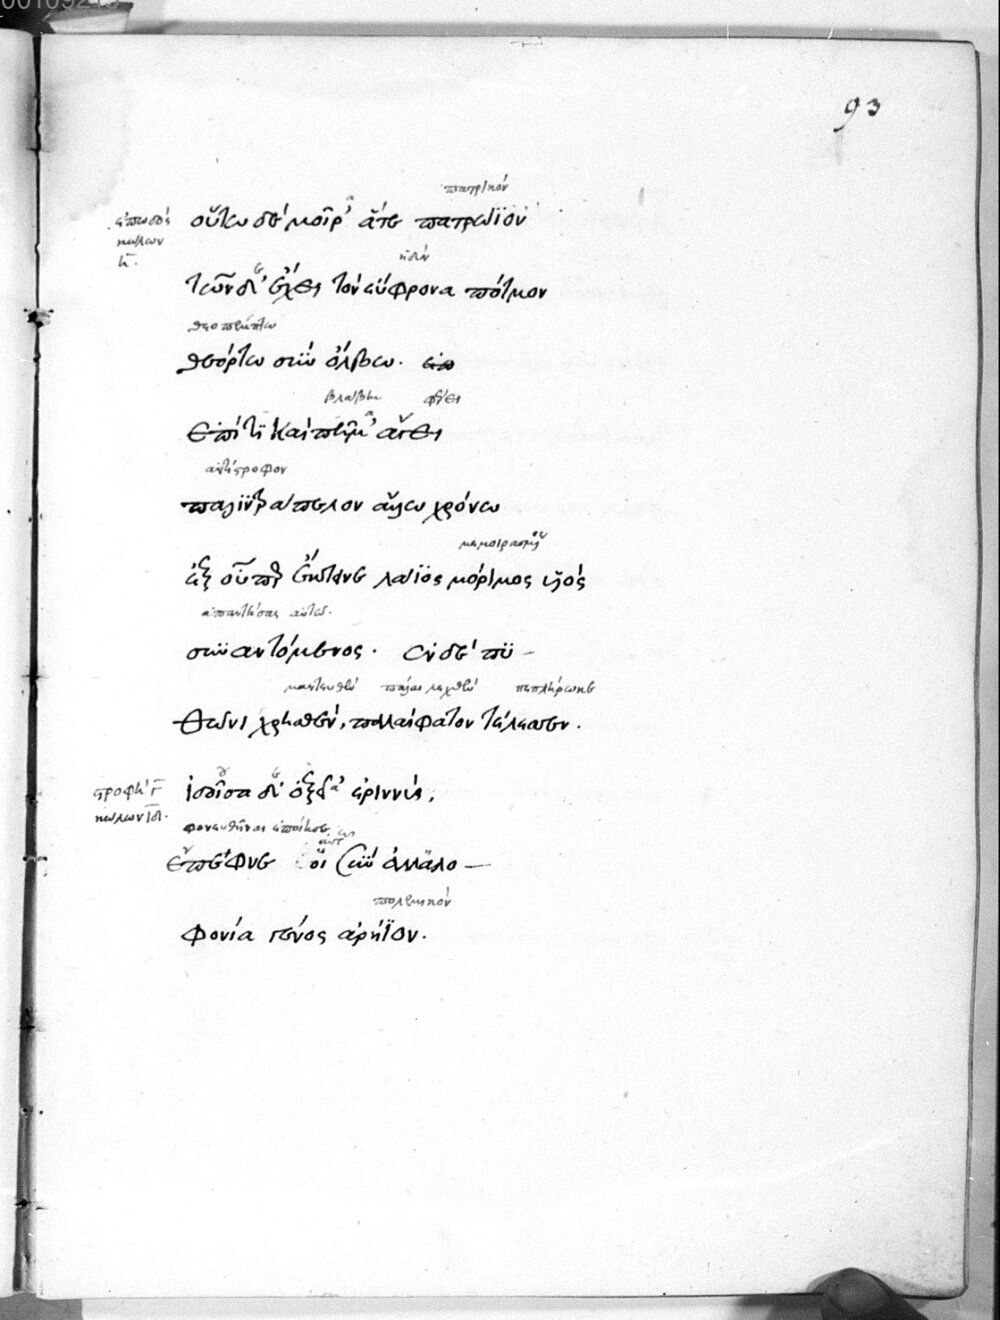 93
πατρικόν
ἐπωδὸς οὕτω δὲ μοῖρ' ἅτε πατρώϊον
κώλων
ἡδύν
τῶνδ' ἔχει τὸν εὔφρονα πότμον
θεοπρέπτω
θεόρτω σὺν ὄλβω.
βλάβην φέρει
ἐπί τι καὶ πῆμ' ἄγει
ἀντίστροφον
παλιντράπελον ἄλλω χρόνω
μεμοιραμένος
ἐξ οὗπερ ἔκτεινε λάϊον μόριμος υἱὸς
ἀπαντήσας αὐτῶ.
συναντόμενος. ἐν δὲ πυ –
μαντευθὲν πάλαι λεχθὲν πεπλήρωκε
θῶνι χρησθὲν, παλαίφατον τέλεσσεν.
στροφὴ γ ἰδοῖσα δ' ὀξεῖα ἐριννὺς,
κώλων ιδ.
φονευθῆναι ἐποίησε
ἔπεφνε οἱ σὺν ἀλλαλο —
πολεμικόν
φονία γένος ἀρήϊον.